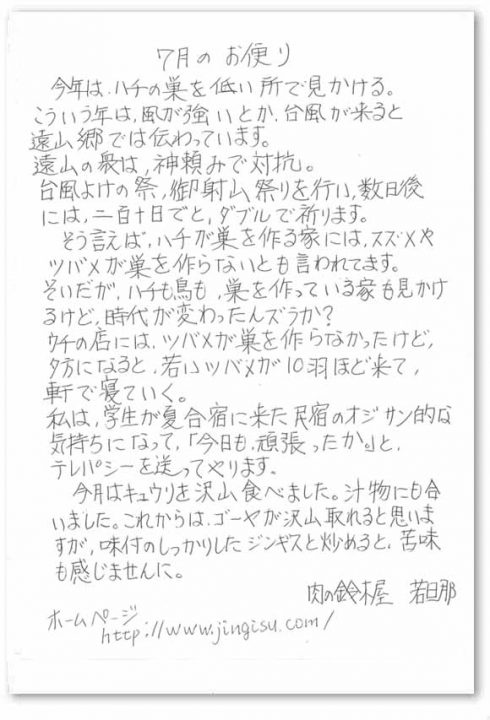 7月のお便り
今年は、ハチの巣を低い所で見かける。
こういう年は、風が強いとか、台風が来ると
遠山郷では伝わっています。
遠山の衆は、神頼みで対抗。
台風よけの祭、御射山祭りを行い、数日後
には、二百十日でと、ダブルで祈ります。
そう言えば、ハチが巣を作る家には、スズメや
ツバメが巣を作らないとも言われてます。
そいだが、ハチも鳥も、巣を作っている家も見かけ
るけど、時代が変わったんズラか?
ウチの店には、ツバメが巣を作らなかったけど、
夕方になると、若いツバメが10羽ほど来て、
軒で寝ていく。
私は、学生が夏合宿に来た民宿のオジサン的な
気持ちになって、「今日も、頑張ったか。」と、
テレパシーを送ってやります。
今月はキュウリを沢山食べました。汁物にも合
いました。これからは、ゴーヤが沢山取れると思いま
すが、味付のしっかりしたジンギスと炒めると、苦味
も感じませんに。
肉の鈴木屋 若旦那
ホームページ
http://www.jingisu.com/